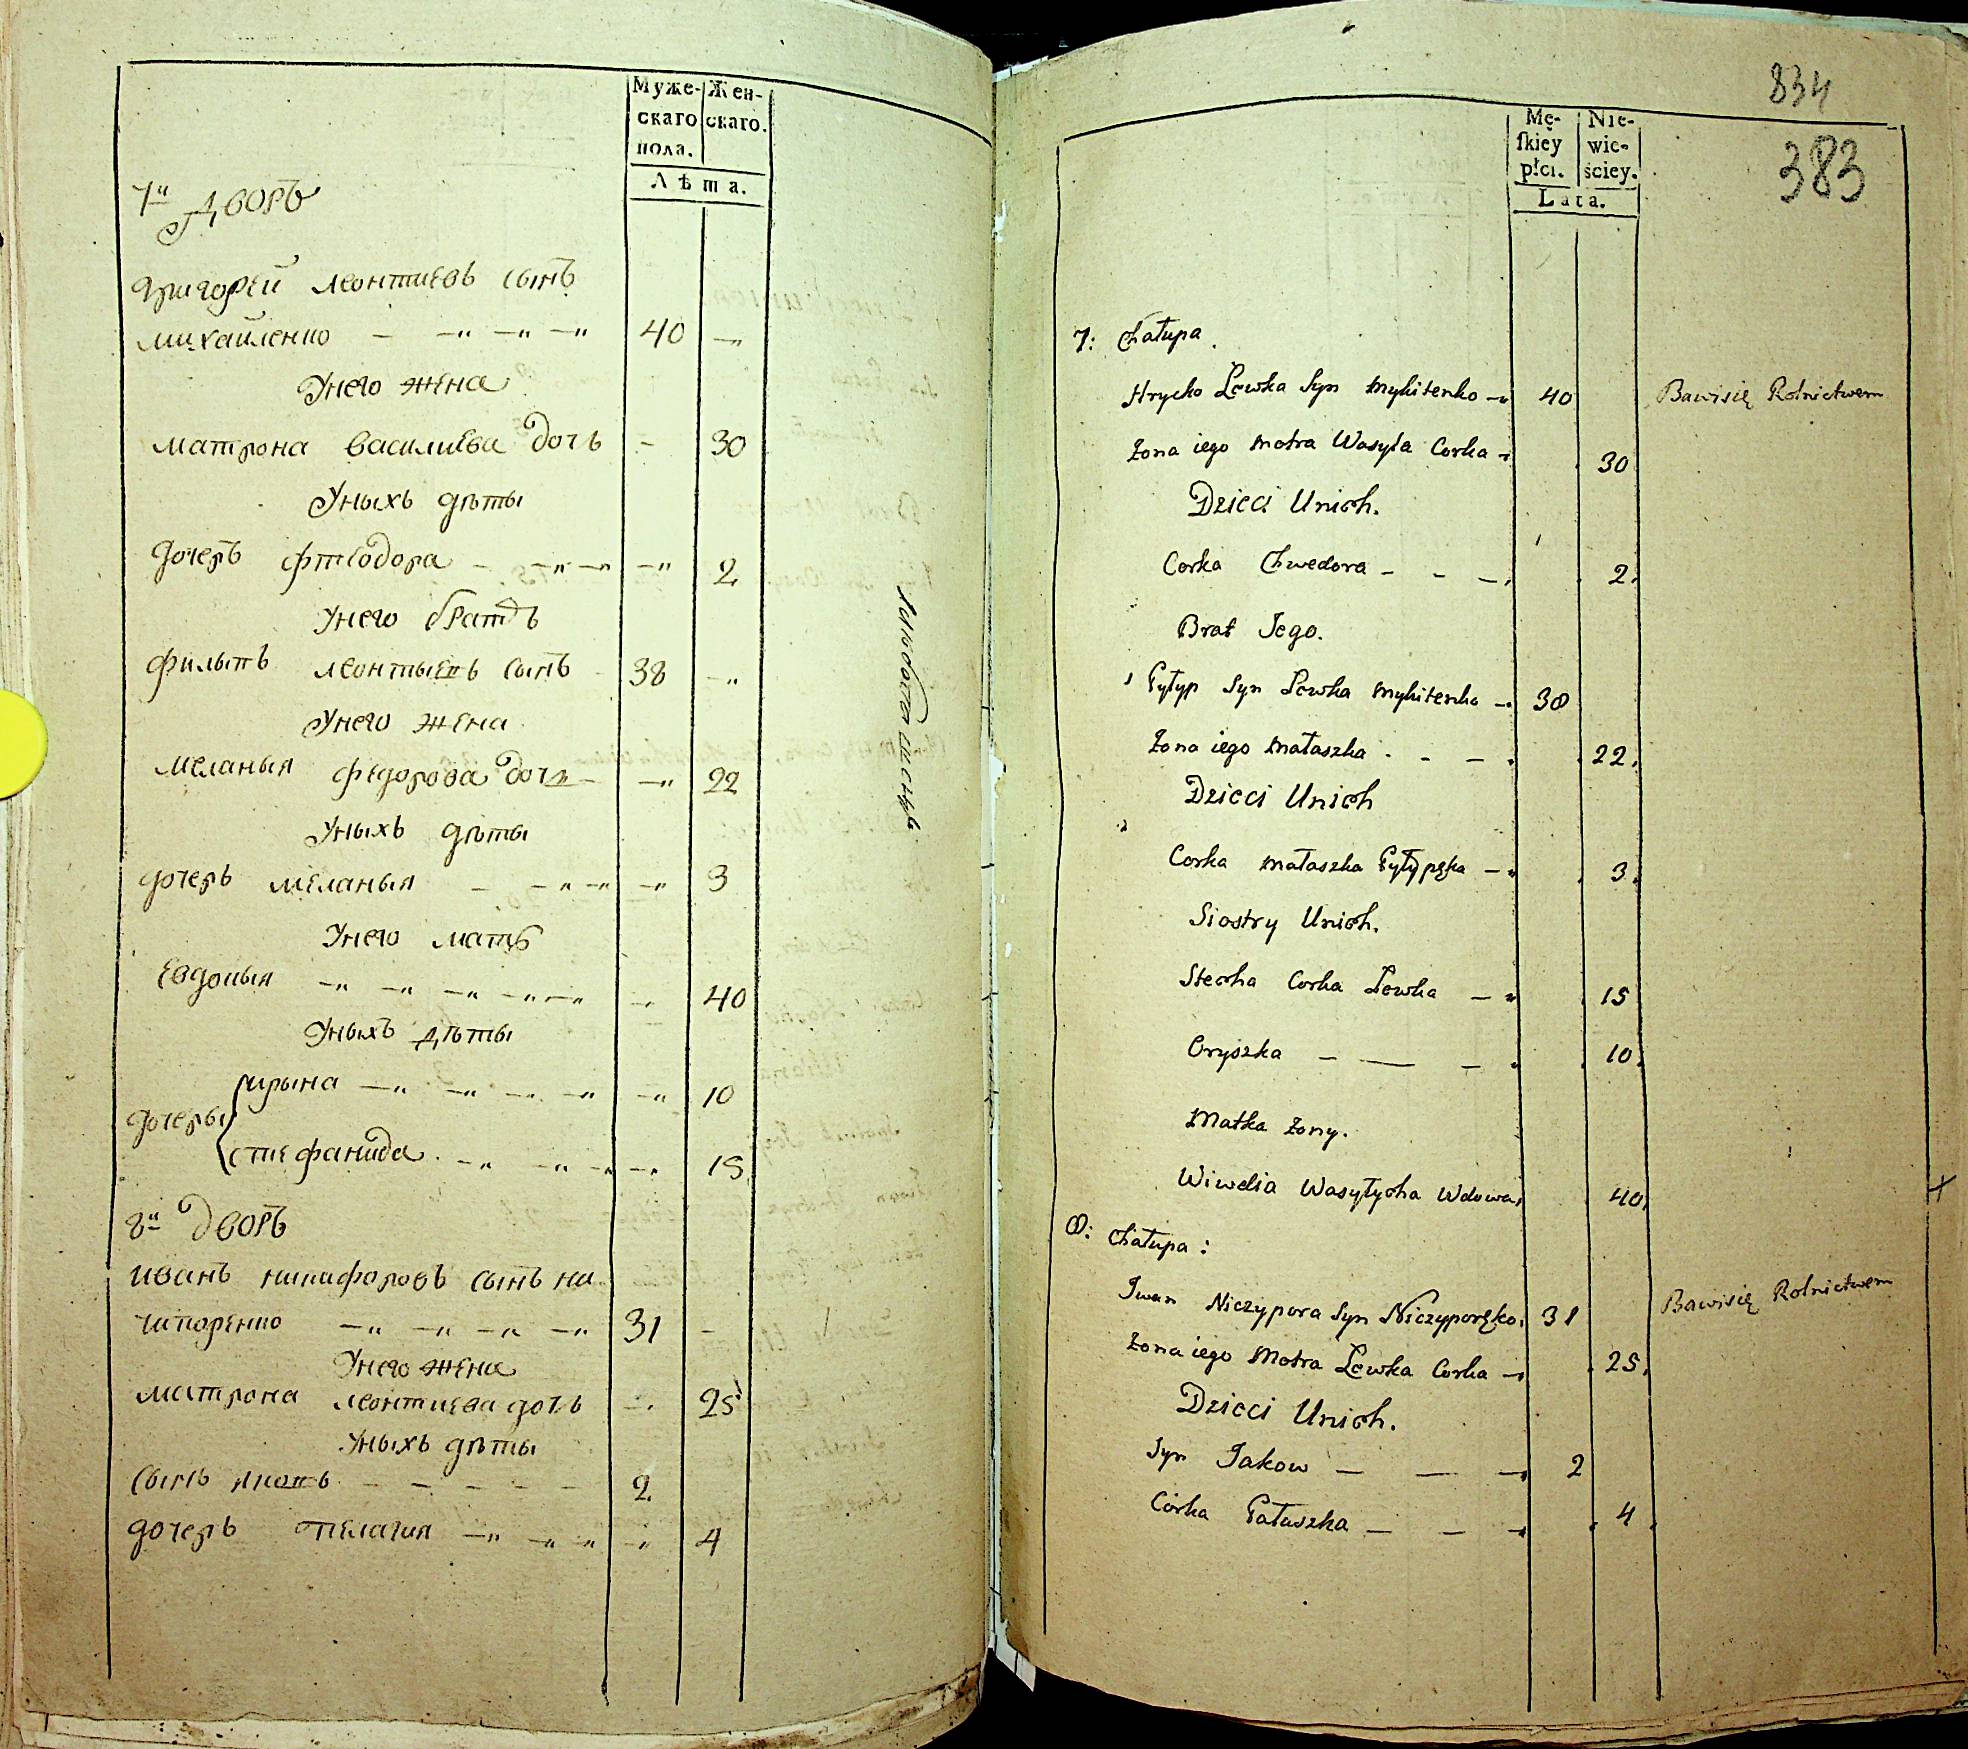 Муже-
скаго
пола.
Жен-
скаго.
Лѣта.
7й дворъ
Григорей леонтиевъ сынъ
михайленко — —„ —„ —„ 40 —„
Унего жена
матрона василиева дочь - 30
Уныхъ дѣты
дочеръ фтеодора — —„ —„ —„ 2
Унего братъ
филыпъ леонтыевъ сынъ - 38 —„
Унего жена
меланыя федорова дочь — —„ 22
Уныхъ дѣты
дочеръ меланыя — —„ —„ —„ 3
Унего матъ
Евдокыя —„ —„ —„ —„ —„ —„ 40
Уныхъ дѣты
дочеры
ирына —„ —„ —„ —„ —„ 10
стефанида. —„ —„ —„ —„ 15
8й дворъ
иванъ никифоровъ сынъ ни
чипоренко —„ —„ —„ —„ 31 -
Унего жена
матрона леонтиева дочь —„ 25
Уныхъ дѣты
сынъ яковъ — — — — — 2
дочеръ пелагия —„ —„ —„ —„ 4
834
383
Mę-
ſkiey
płci.
Nie-
wie-
ściey.
Lata.
7: Chałupa.
Hrycko Lewka Syn Mykitenko — 40 Bawisię Rolnictwem
Żona iego Motra Wasyla Corka — 30
Dzieci Unich.
Corka Chwedora — - — 2.
Brat Jego.
Pyłyp Syn Lewka Mykitenko — 38
Żona iego Małaszka - - — 22.
Dzieci Unich
Corka Małaszka Pyłypęka — 3.
Siostry Unich.
Stecha Corka Lewka — 15
Oryszka — — — 10.
Matka Żony.
Wiwdia Wasyłycha Wdowa, 40.
8: Chałupa:
Iwan Niczypora Syn Niczyporęko. 31 Bawisię Rolnictwem
Żona iego Motra Lewka Corka — 25.
Dzieci Unich.
Syn Jakow — — — 2
Córka Pałaszka — — — 4.